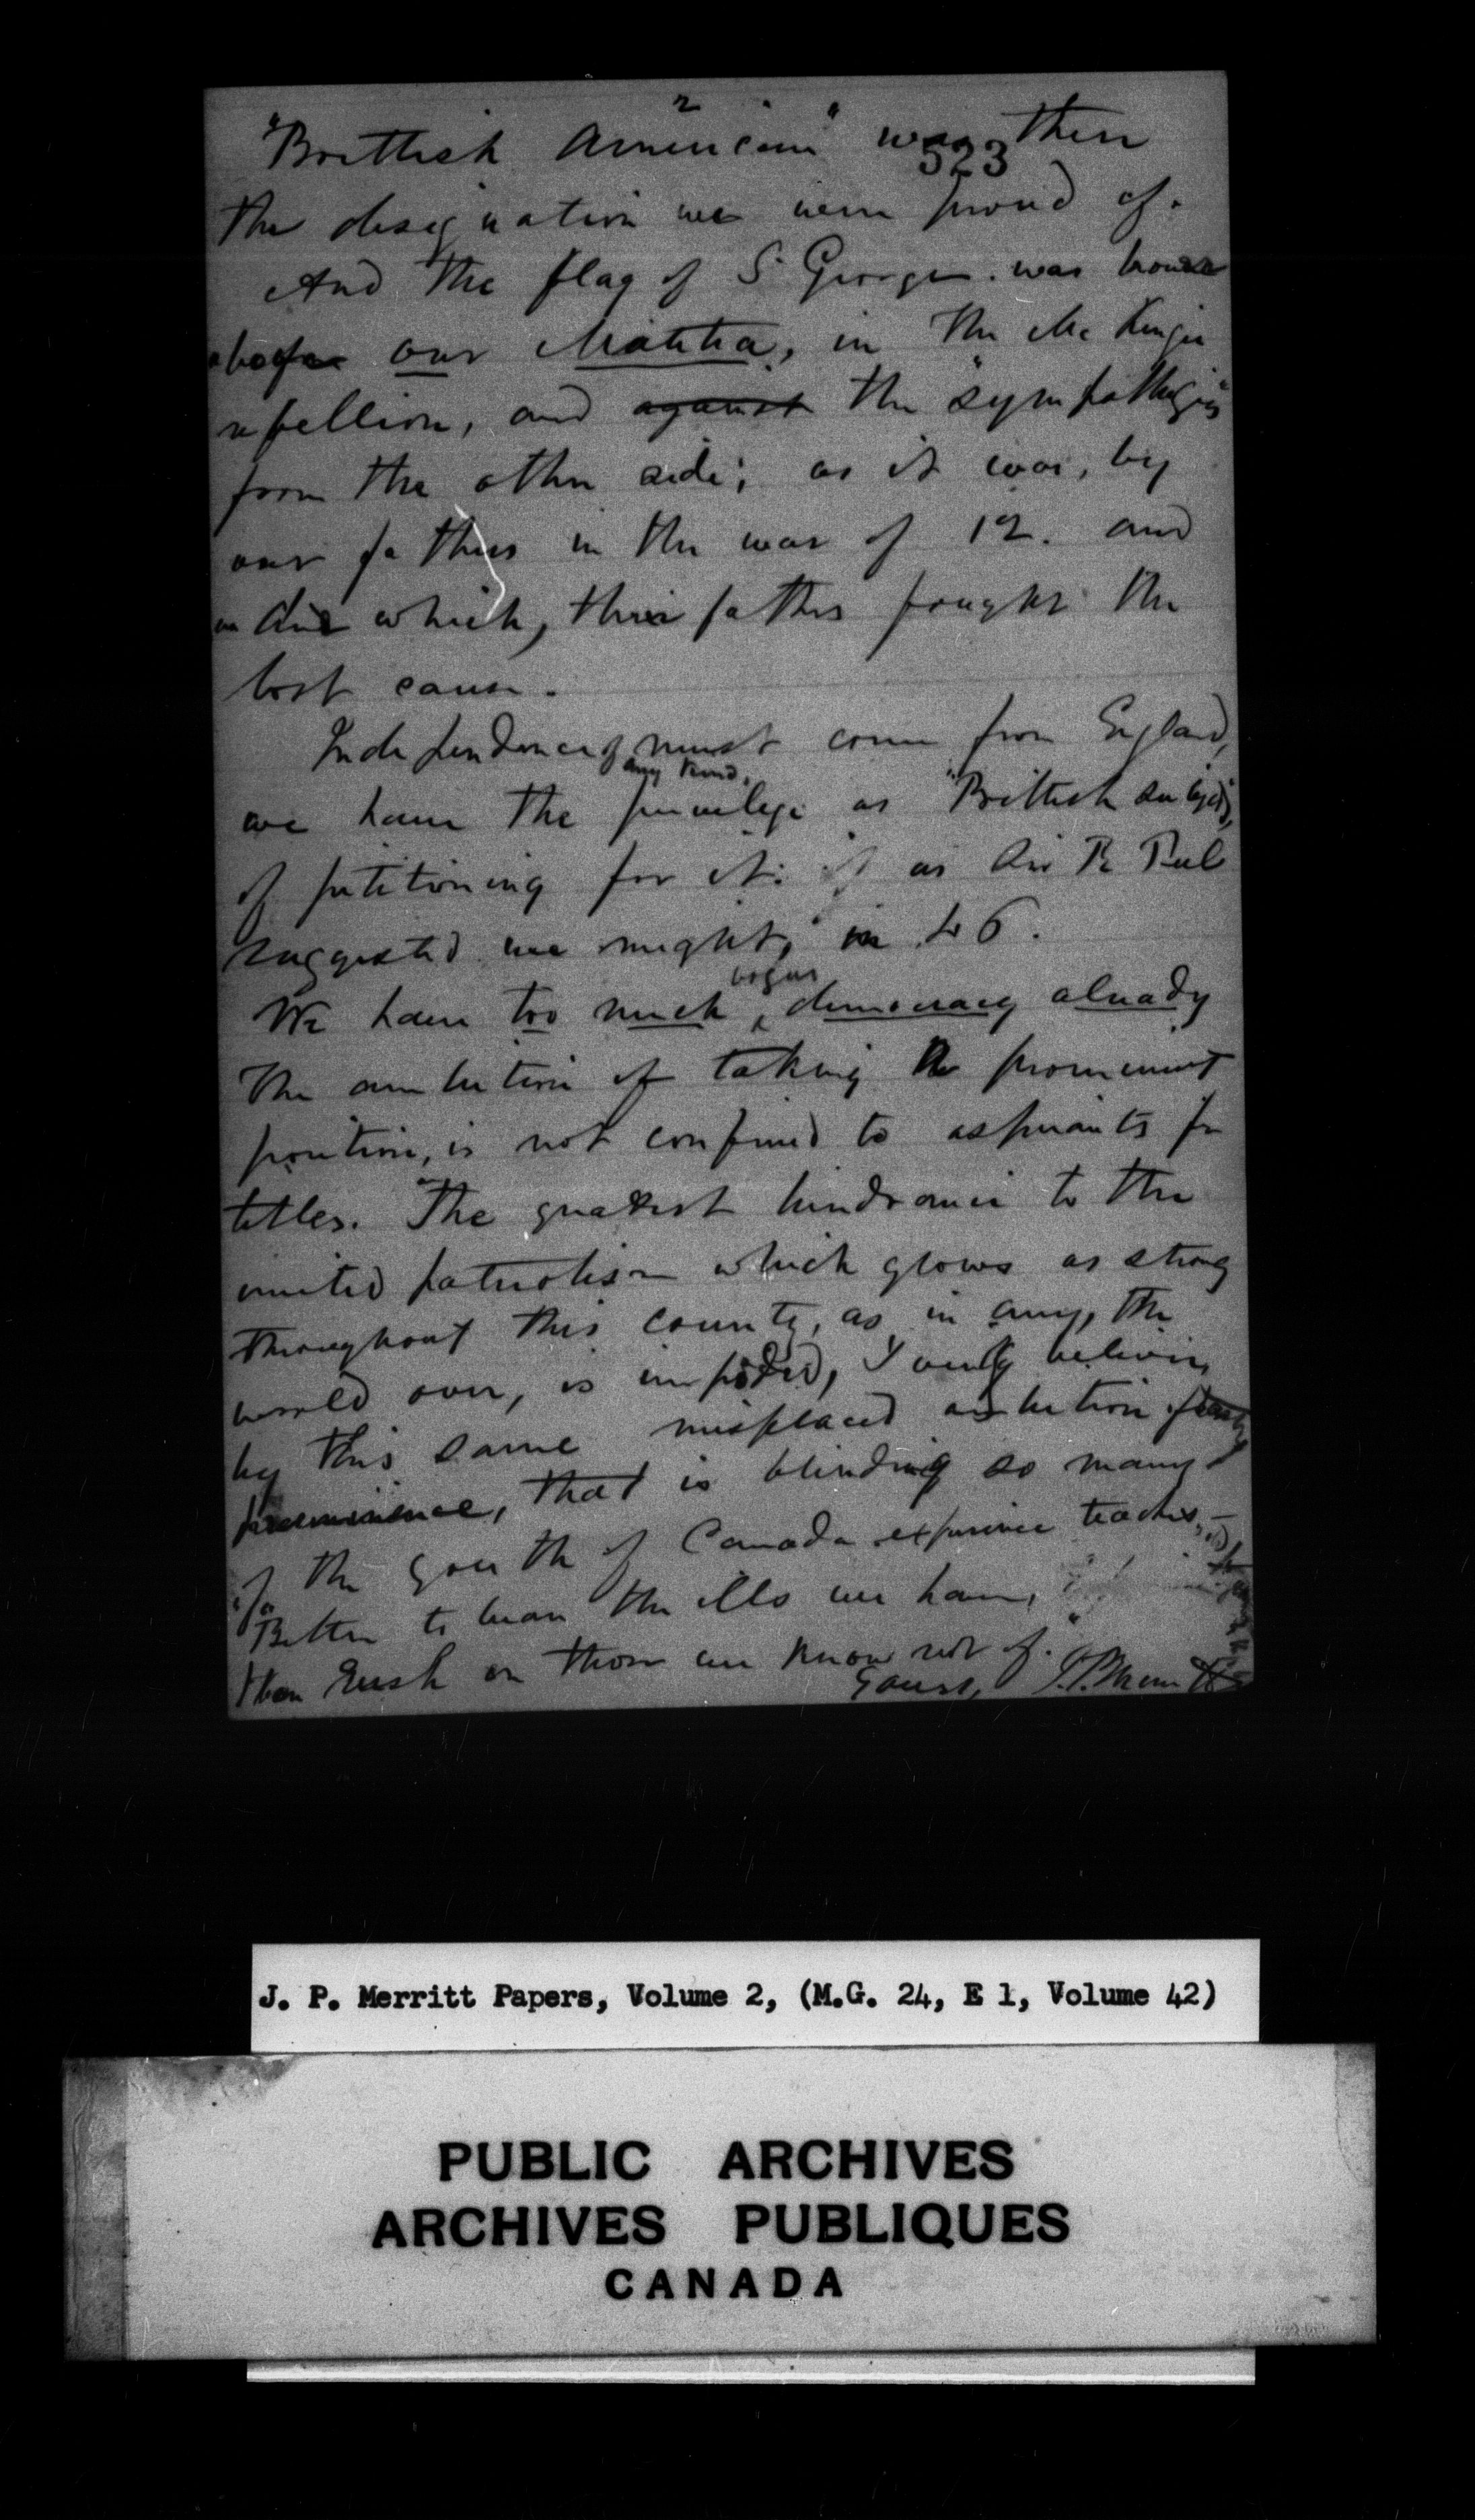 2
"Brittish American" was then
523
the designation we were proud of.
And the flag of St George was borne
before our Militia, in the Mc Kenzie
rebellion, and against the "sympathizers"
from the other side; as it was, by
our fathers in the war of 12. and
under which, their fathers fought the
lost cause.
Independence of must come from England,
any kind,
we have the privilege as "Brittish subjects",
of petitioning for it: as Sir R Peel
suggested we might, in 46.
bogus
We have too much democracy already
The ambition of taking a prominent
position, is not confined to aspirants for
titles. The greatest hindrance to the
united patriotism which glows as strong
throughout this county, as in any, the
world over, is impeded, I verily believe,
by this same misplaced ambition for
preeminence, that is blinding so many
of the youth of Canada experience teaches, –
"Better to bear the ills we have,
than rush on those we know not of."
Yours, J.P. Merritt
J. P. Merritt Papers, Volume 2, (M.G. 24, E 1, Volume 42)
PUBLIC ARCHIVES
ARCHIVES PUBLIQUES
CANADA